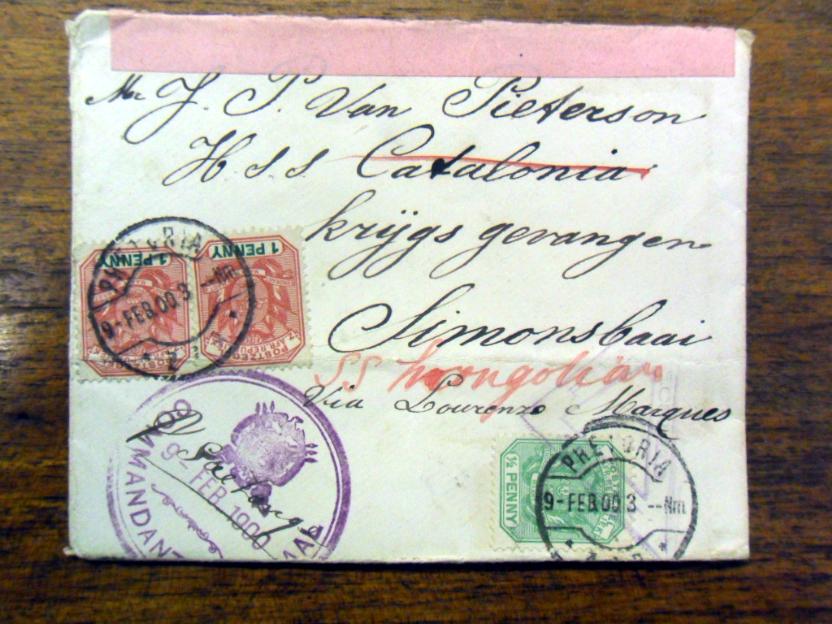 Mr J. P. Van Pieterson
H. S. S Catalonia
krijgs gevangen
Simonsbaai
SS Mongolian
Via Lourenzo Marques
1 PENNY
1 PENNY
PRETORIA
9-FEB.00 3 --Nm
COMMANDANT
9-FEB 1900
½ PENNY
PRETORIA
9-FEB.00 3 --Nm